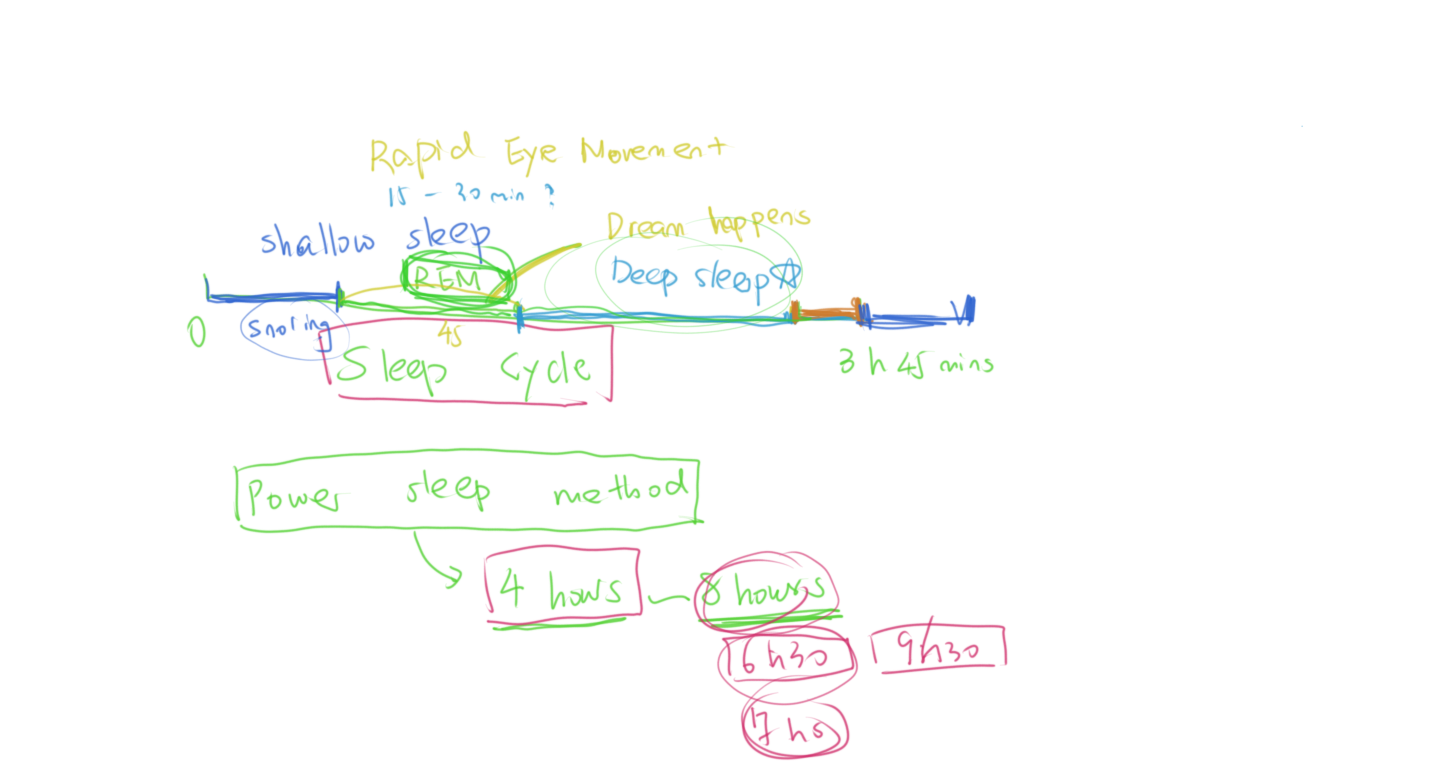 Rapid Eye Movement
15 - 30 min ?
Dream happens
shallow sleep
Deep sleep
REM
0
Snoring
45
3 h 45 mins
Sleep Cycle
Power sleep method
4 hours
8 hours
6 h30
9h30
7 hs